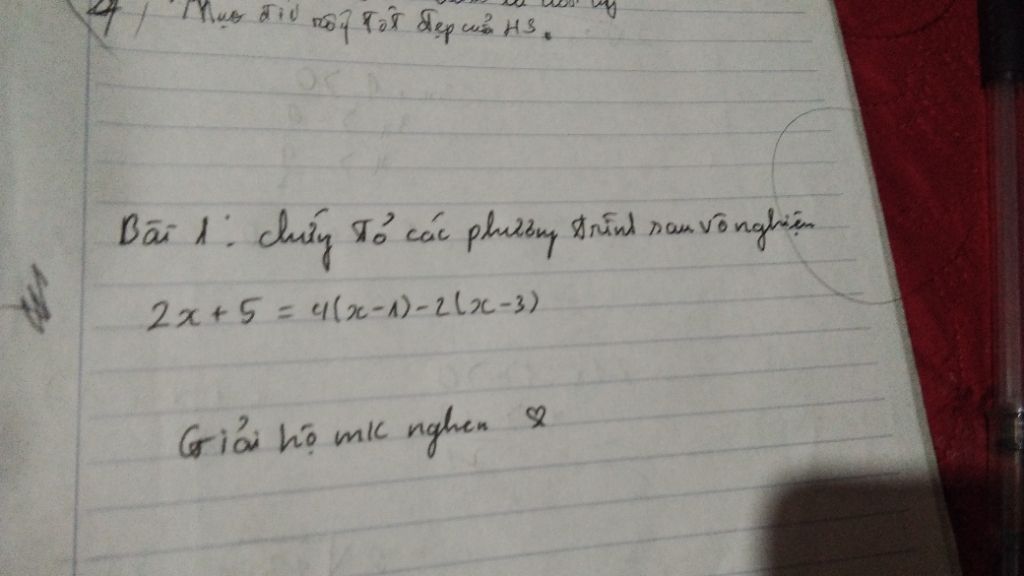 4) Mục đích tốt đẹp của HS.
Bài 1: chứng tỏ các phương trình sau vô nghiệm
2x + 5 = 4(x-1)-2(x-3)
Giải hộ mk nghen ♡